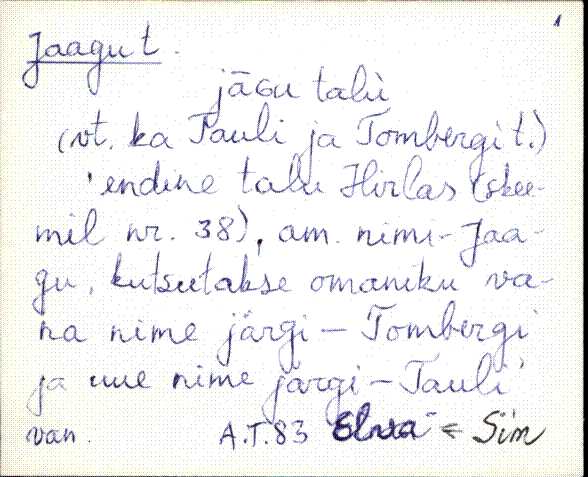 1
Jaagu t.
jāGu talù
(vt. ka Tauli ja Tombergi t.)
endine talu Hirlas (skee-
mil nr. 38), am. nimi-Jaa-
gu, kutsutakse omaniku va-
na nime järgi – Tombergi
ja uue nime järgi – Tauli
van. A.T.83 Elva < Sim